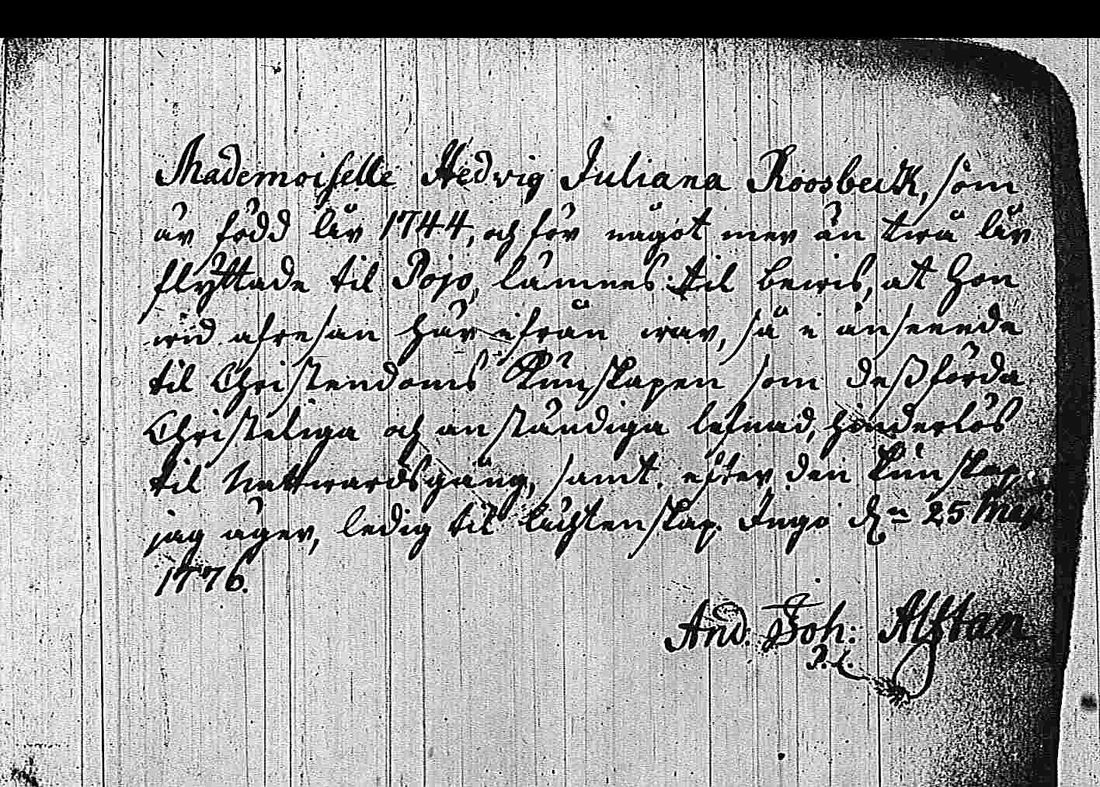 Mademoiselle Hedvig Juliana Roosbeck, som
är född åhr 1744, och för något mer än twå åhr
flyttade til Pojo, lämnes til bewis, at Hon
wid afresan här ifrån war, så i anseende
til Christendoms Kunskapen som dess förda
Christeliga och anständiga lefnad, hinderlös
til Nattwardsgång, samt efter den kunskap
jag äger, ledig til ächtenskap. Ingo d:n 25 Maji
1776.
And. Joh: Alftan
P.l.